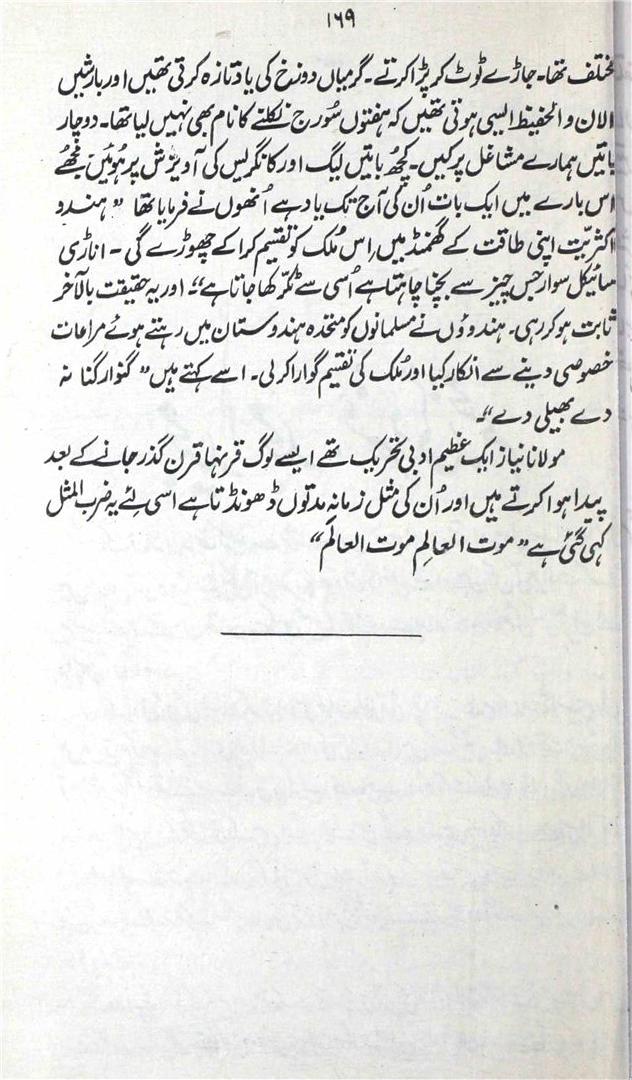 ۱۶۹
مختلف تھا۔ جاڑے ٹوٹ کر پڑا کرتے۔ گرمیاں دوزخ کی یاد تازہ کرتی تھیں اور بارشیں
الامان والحفیظ ایسی ہوتی تھیں کہ ہفتوں سُورج نکلنے کا نام بھی نہیں لیتا تھا۔ دو چار
باتیں ہمارے مشاغل پر کیں۔ کچھ باتیں لیگ اور کانگریس کی آویزش پر ہوئیں۔ مجھے
اس بارے میں ایک بات اُن کی آج تک یاد ہے اُنھوں نے فرمایا تھا ”ہندو
اکثریّت اپنی طاقت کے گھمنڈ میں اِس مُلک کو تقسیم کرا کے چھوڑے گی ۔ اناڑی
سائیکل سوار جس چیز سے بچنا چاہتا ہے اُسی سے ٹکّر کھا جاتا ہے“۔ اور یہ حقیقت بالآخر
ثابت ہو کر رہی۔ ہندوؤں نے مسلمانوں کو متحدہ ہندوستان میں رہتے ہوئے مراعات
خصوصی دینے سے انکار کیا اور مُلک کی تقسیم گوارا کر لی۔ اسے کہتے ہیں ”گنوار گنا نہ
دے بھیلی دے“۔
مولانا نیاز ایک عظیم ادبی تحریک تھے ایسے لوگ قرنہا قرن گذر جانے کے بعد
پیدا ہوا کرتے ہیں اور اُن کی مثل زمانہ مدتوں ڈھونڈتا ہے اسی لئے یہ ضرب المثل
کہی گئی ہے ”موت العالِم موت العالَم“